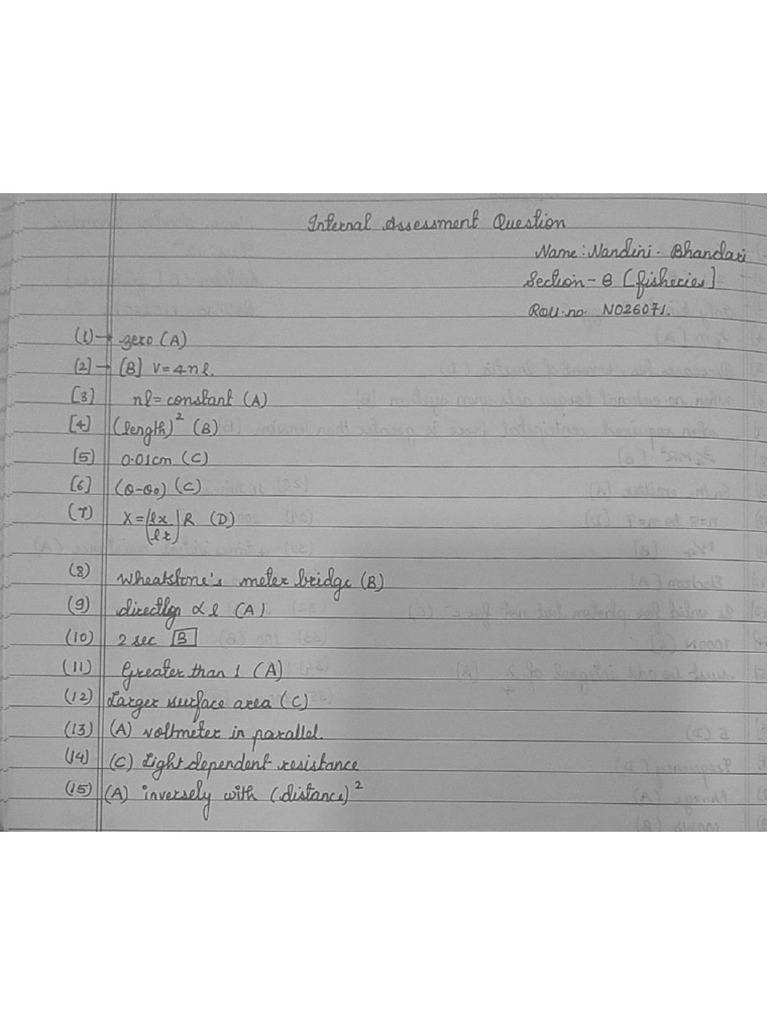 Internal Assessment Question
Name: Nandini. Bhandari
Section - B [fisheries]
Roll.no. N026071.
(1) → zero (A)
[2] → [B] V=4nl.
[3] nl=constant (A)
[4] (length)² (B)
[5] 0.01cm (C)
[6] (θ-θ0) (C)
(7) X=(lx/lt)R (D)
(8) Wheatstone's meter bridge (B)
(9) directly ∝ l (A).
(10) 2 sec [B]
(11) Greater than 1 (A)
(12) Larger surface area (C)
(13) (A) voltmeter in parallel.
(14) (C) Light dependent resistance
(15) (A) inversely with (distance)²